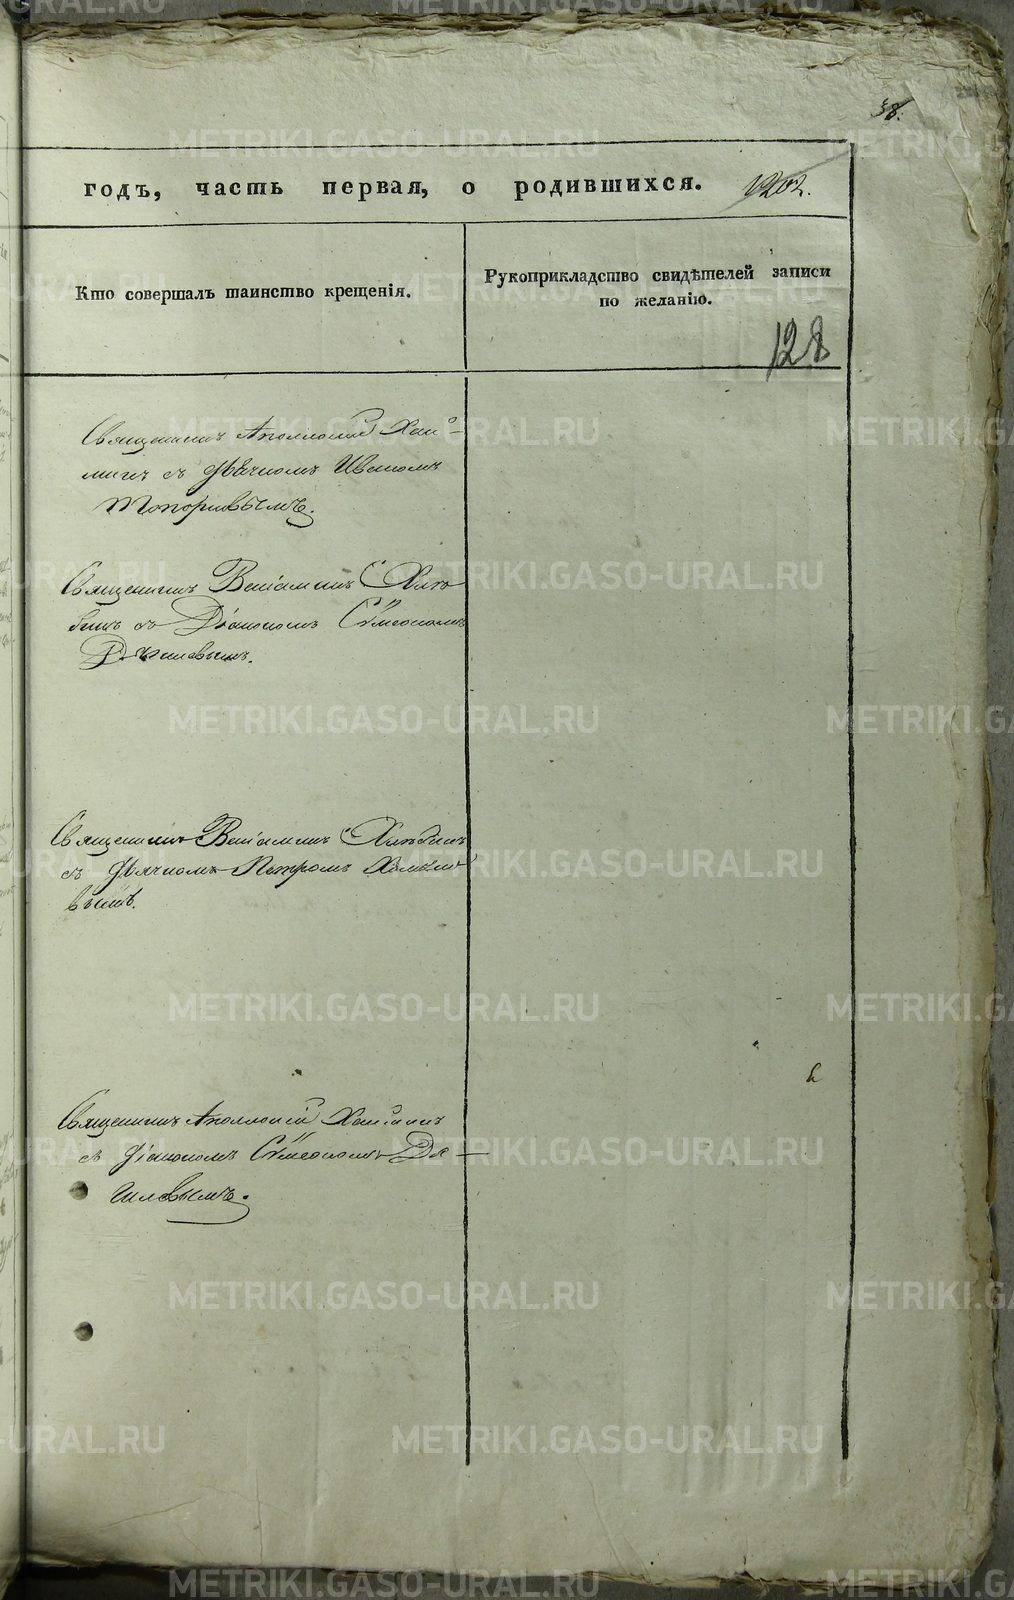 58.
годъ, часть первая, о родившихся. 1202.
Кто совершалъ таинство крещенія.
Рукоприкладство свидѣтелей записи
по желанію.
128
Священникъ Аполлоній
с дьячкомъ Иваномъ
Топорковымъ.
Священникъ Веніаминъ Хлѣ-
бинъ съ Діакономъ Сѵмеономъ
Дягилевымъ.
Священникъ Веніаминъ Хлѣбинъ
съ дьячкомъ Петромъ
вымъ.
Священникъ Аполлоній
съ діакономъ Сѵмеономъ Дя-
гилевымъ.
METRIKI.GASO-URAL.RU